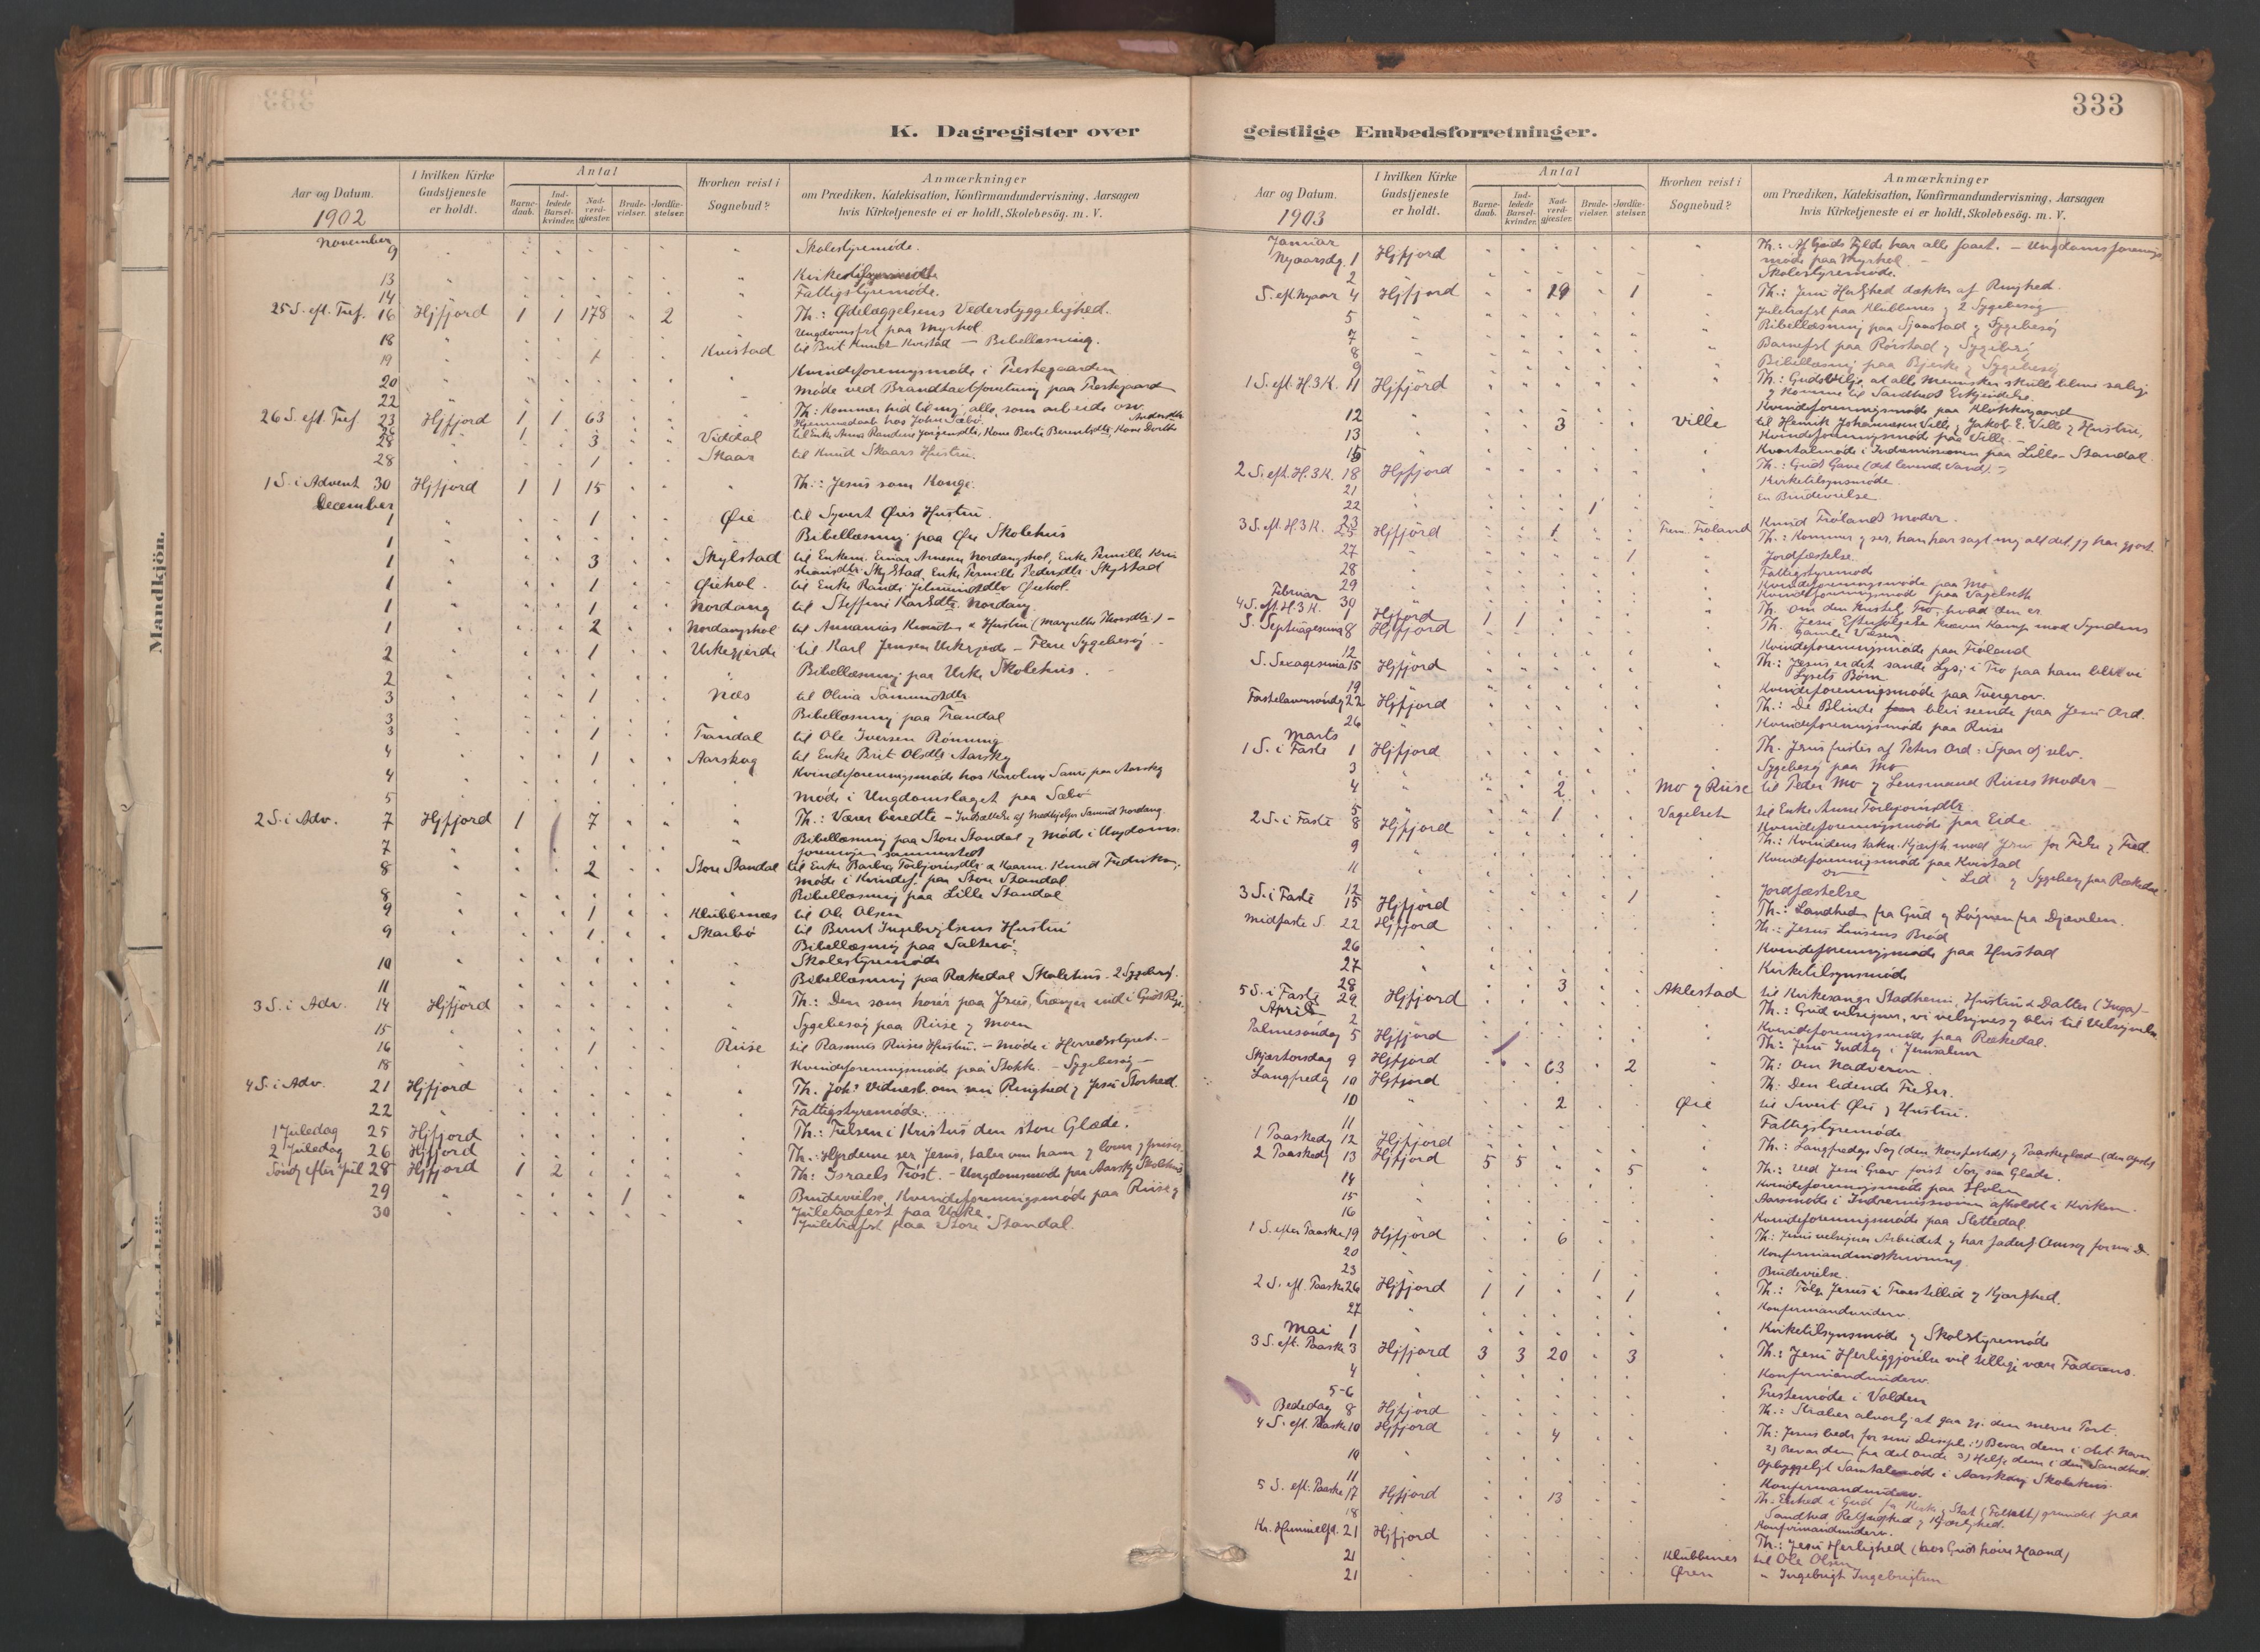 333
K. Dagregister over
Aar og Datum.
1902
I hvilken Kirke Gudstjeneste er holdt.
Antal
Barne-daab.
Ind-ledede Barsel-kvinder.
Nad-verd-gjester.
Brude-vielser.
Jordfæ-stelser.
Hvorhen reist i Sognebud?
Anmærkninger
om Prædiken, Katekisation, Konfirmandundervisning, Aarsagen
hvis Kirketjeneste ei er holdt, Skolebesög. m. V.
November
9 Skolestyremøde.
13
14 Fattigstyremøde.
25 S. eft. Tref. 16 Hjfjord 1 1 178 2 Th.: Ødelæggelsens Vederstyggelighed.
18 Ungdomsfst paa Myrhol
19 Kvistad til Brit Knudt Kvistad — Bibellæsning.
20 Kvindeforeningsmøde i Præstegaarden
22 Møde ved Brandtaxtforretning paa Præstegaard
26 S. eft. Tref 23 Hjfjord 1 1 63 Th: Kommer hid til mig, alle, som arbeide osv.
Hjemmedaab hos John Sæbø.
28 3 Viddal
28 1 Skaar til Knud Skaars Hustru.
1 S. i Advent 30 Hjfjord 1 1 15 Th.: Jesus som Konge.
December
1 1 Øie til Syvert Øies Hustru.
1 Bibellæsning paa Øie Skolehus
1 3 Skylstad til Enkem. Einar Arnesen Nordangshol, Enke Pernille Kristiansdtr. Skylstad, Enke Pernille Pedersdtr. Skylstad
1 1 Øiehol. til Enke Rande Jetmundsdtr Øiehol.
1 1 Nordang til Steffine Karlsdtr. Nordang.
1 2 Nordangshol til Annanias Knudsen & Hustru
2 1 Urkegjerde til Karl Jensen Urkegjerde — Flere Sygebesøg
2 Bibellæsning paa Urke Skolehus.
3 1 Næs til Olina Samundsdtr.
3 Bibellæsning paa Trandal
3 1 Trandal til Ole Iversen Rønning
4 1 Aarskog til Enke Brit Olsdtr Aarskog
4 Kvindeforeningsmøde hos Karoline
5 Møde i Ungdomslaget paa Sæbø
2 S. i Adv. 7 Hjfjord 1 1 7 Th.: Værer beredte — Indsættelse af Medhjelper Samund Nordang.
7 Bibellæsning paa Store Standal & Møde i Ungdomsforeningen sammesteds
8 2 Store Standal til Enke Barbra Torbjørnsdtr & Kaarm. Knud Fredriksen.
Møde i Kvindef. paa Store Standal
8 Bibellæsning paa Lille Standal
9 1 Klubbenæs til Ole Olsen
9 1 Skarbø til Bernt Ingebrigtsens Hustru
Bibellæsning paa Sætre
10 Skolestyremøde
11 Bibellæsning paa Rækedal Skolehus. 2 Sygebesøg.
3 S. i Adv. 14 Hjfjord Th.: Den som hører paa Jesus, trænger ind i Guds Rige.
15 Sygebesøg paa Riise & Moen
16 1 Riise til Rasmus Riises Hustru. — Møde i Herredsstyret. —
18 Kvindeforeningsmøde paa Stokke. — Sygebesøg —
4 S. i Adv. 21 Hjfjord Th. Joh's Vidnesb. om sin Ringhed & Jesu Storhed.
22 Fattigstyremøde.
1 Juledag 25 Hjfjord Th.: Frelsen i Kristus den store Glæde.
2 Juledag 26 Hjfjord Th.: Hyrderne ser Jesus, taler om ham & lover & priser.
Søndg efter Jul 28 Hjfjord 1 2 Th: Israels Trøst. — Ungdomsmøde paa Aarskog Skolehus
29 1 Brudevielse, Kvindeforeningsmøde paa Riise &
30 Juletrafest paa Urke.
Juletrafst paa Store Standal.
geistlige Embedsforretninger.
Aar og Datum.
1903
I hvilken Kirke Gudstjeneste er holdt.
Antal
Barne-daab.
Ind-ledede Barsel-kvinder.
Nad-verd-gjester.
Brude-vielser.
Jordfæ-stelser.
Hvorhen reist i Sognebud?
Anmærkninger
om Prædiken, Katekisation, Konfirmandundervisning, Aarsagen
hvis Kirketjeneste ei er holdt, Skolebesög. m. V.
Januar
Nyaarsdg. 1 Hjfjord Th.: Af Guds Fylde har alle faaet. — Ungdomsforenings
møde paa Myrhol. —
2 Skolestyremøde.
S. eft. Nyaar 4 Hjfjord 29 1 Th.: Jesu Høihed dækkes af Ringhed.
5 Juletræfst paa Klubbenes & 2 Sygebesøg
7 Bibellæsning paa Sjaastad & Sygebesøg
8 Barnefst paa Rørstad & Sygebesøg
9 Bibellæsning paa Bjerke & Sygebesøg
1 S. eft. H. 3 K. 11 Hjfjord Th: Guds Vilje, at alle Mennesker skulle blive salige
& komme til Sandheds Erkjendelse.
12 Kvindeforeningsmøde paa Klokkergaard
13 3 Ville til Henrik Johannesen Ville, Jakob E. Ville & Hustru,
Kvindeforeningsmøde paa Ville. —
15 Kvartalsmøde i Indremissionen paa Lille-Standal.
2 S. eft. H. 3 K. 18 Hjfjord Th.: Guds Gave (det levende Vand). —
21 Kirketilsynsmøde.
22 1 En Brudevielse
23 1 Frem. Frøland Knud Frølands Moder.
3 S. eft. H. 3 K. 25 Hjfjord Th.: Kommer & ser, han har sagt mig alt det, jeg har gjort.
27 1 Jordfæstelse.
28 Fattigstyremøde
29 Kvindeforeningsmøde paa Mo
30 Kvindeforeningsmøde paa Vagelseth
Februar
4 S. eft. H. 3 K. 1 Hjfjord 1 1 Th. om den kristelig Tro, hvad den er.
S. Septuagesima 8 Hjfjord Th. Jesu Efterfølgelse kræver Kamp mod Syndens
gamle Væsen
12 Kvindeforeningsmøde paa Frøland
S. Sexagesima 15 Hjfjord Th.: Jesus er det sande Lys; i Tro paa ham blive vi
Lysets Børn
19 Kvindeforeningsmøde paa Tvergrov.
Fastelavnssøndg 22 Hjfjord Th.: De Blinde blir seende paa Jesu Ord.
26 Kvindeforeningsmøde paa Riise
Marts
1 S. i Faste 1 Hjfjord Th. Jesus fristes af Peters Ord: Spar dig selv.
3 Sygebesøg paa Mo
4 2 Mo & Riise til Peder Mo & Lensmand Riises Moder —
5 1 Vagelset til Enke Anne Torbjørnsdtr.
Kvindeforeningsmøde paa Eide
2 S. i Faste 8 Hjfjord
9 Kvindeforeningsmøde paa Kvistad
11 Lid & Sygebesøg paa Rækedal
12 1 Jordfæstelse
3 S. i Faste 15 Hjfjord Th.: Sandheden fra Gud & Løgnen fra Djævelen.
Midfaste S. 22 Hjfjord Th.: Jesus Livsens Brød
26 Kvindeforeningsmøde paa Hustad
27 Kirketilsynsmøde
28 3 Aklestad til Kirkesanger Stadheim, Hustru & Datter (Inga) —
5 S. i Faste 29 Hjfjord Th.: Gud velsigner, vi velsignes & blir til Velsignelse
April
2 Kvindeforeningsmøde paa Rækedal.
Palmesøndag 5 Hjfjord Th: Jesu Indtog i Jerusalem
Skjærtorsdag 9 Hjfjord 63 2 Th: Om Nadveren.
Langfredg 10 Hjfjord Th: Den lidende Frelser.
10 2 Øie til Sivert Øie & Hustru.
11 Fattigstyremøde
1 Paaskedg 12 Hjfjord Th.: Langfredags Sorg (den Korsfæstede) & Paaskeglæde (den opst)
2 Paaskedg 13 Hjfjord 5 5 5 Th.: Ved Jesu Grav først Sorg saa Glæde.
14 Kvindeforeningsmøde paa Holen
15 Aarsmøde i Indremissionen afholdt i Kirken.
16 Kvindeforeningsmøde paa Slettedal.
1 S. efter Paaske 19 Hjfjord 6 Th: Jesus velsigner Arbeidet & har faderlig Omsorg for sine D.
20 Konfirmandindskrivning
23 1 Brudevielse.
2 S. eft. Paaske 26 Hjfjord 1 1 1 Th.: Følg Jesus i Troestillid & Kjærlighed.
27 Konfirmandunderv.
Mai 1 Kirketilsynsmøde & Skolestyremøde
3 S. eft. Paaske 3 Hjfjord 3 3 20 3 Th.: Jesu Herliggjørelse vil tillige være Faderens.
4 Konfirmandunderv.
5-6 Prestemøde i Volden
Bededag 8 Hjfjord Th.: Stræber alvorlig at gaa gj. den snevre Port.
4 S. eft. Paaske 10 Hjfjord 4 Th: Jesus beder for sine Disciple: 1) Bevar dem i det Navn
2) Bevar dem fra det onde 3) Hellige dem i din Sandhed.
10 Opbyggeligt Samtalemøde i Aarskog Skolehus
11 Konfirmandunderv.
5 S. eft. Paaske 17 Hjfjord 13 Th. Enhed i Gud for Kirke & Stat (Folket) grundet paa
Sandhed, Retfærdighed & Kjærlighed.
18 Konfirmandunderv.
Kr. Himmelfd. 21 Hjfjord Th.: Jesu Herlighed (hos Guds høire Haand)
21 Klubbenes til Ole Olsen
21 Øren " Ingebrigt Ingebrigtsen
Mandkjön.